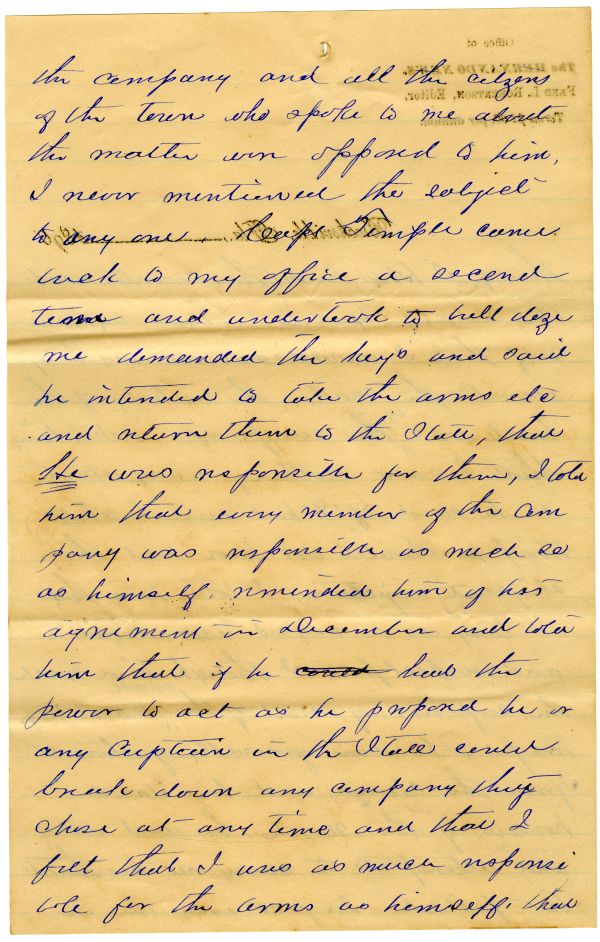 the company and all the citizens
of the town who spoke to me about
the matter were opposed to him,
I never mentioned the subject
to any one. Capt Temple came
back to my office a second
time and undertook to bull doze
me demanded the keys and said
he intended to take the arms etc
and return them to the State, that
He was responsible for them, I told
him that every member of the com
pany was responsible as much so
as himself. reminded him of his
agreement in December and told
him that if he could had the
power to act as he proposed he or
any Captain in the State could
break down any company they
chose at any time and that I
felt that I was as much responsi
ble for the arms as himself. that
Office of
The HERNANDO NEWS,
FRED L. ROBERTSON, Editor.